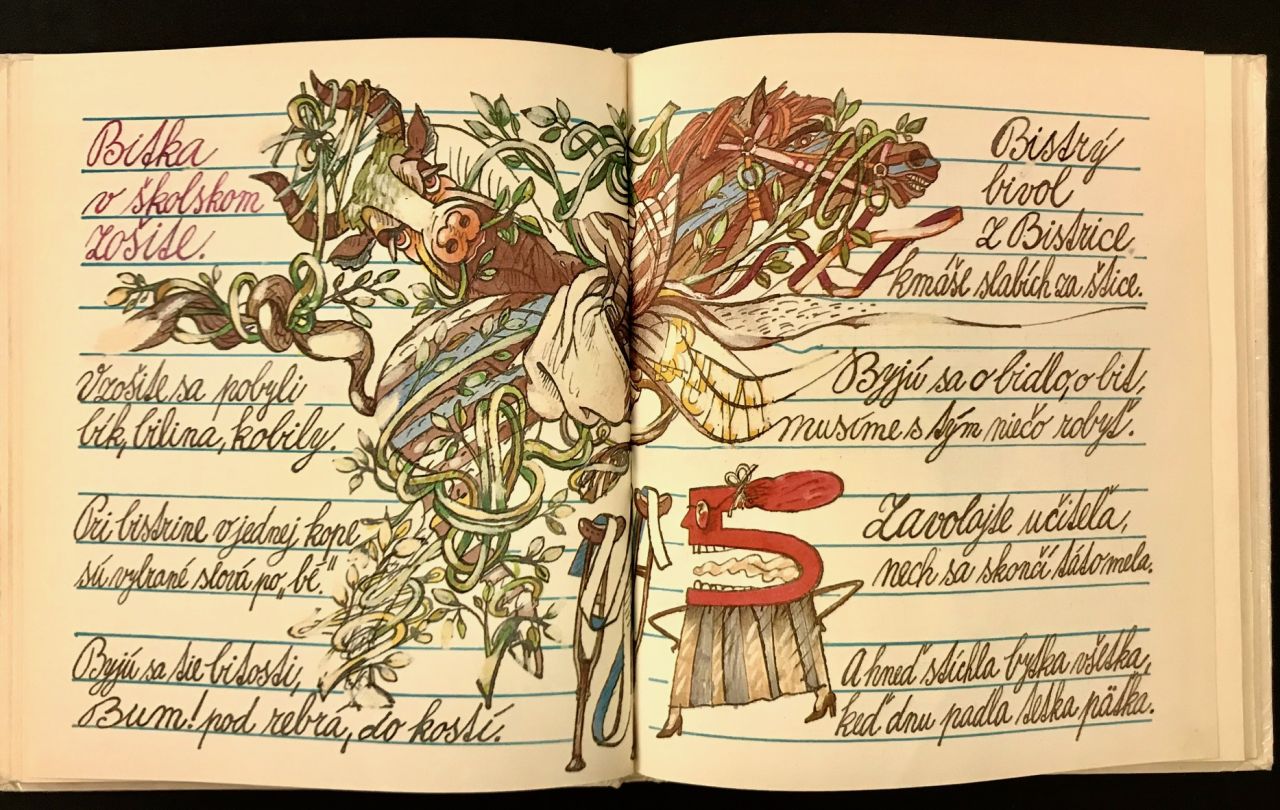 Bitka
v školskom
zošite.
V zošite sa pobyli
bík, bilina, kobily.
Pri bistrine v jednej kope
sú vybrané slová po „bé“.
Byjú sa tie bitosti,
Bum! pod rebrá, do kostí.
Bistrý
bivol
z Bistrice
kmáše slabích za štice.
Byjú sa o bidlo, o bit,
musíme s tým niečo robyť.
Zavolajte učiteľa,
nech sa skončí táto mela.
A hneď stíchla bytka všetka,
keď dnu padla tetka päťka.